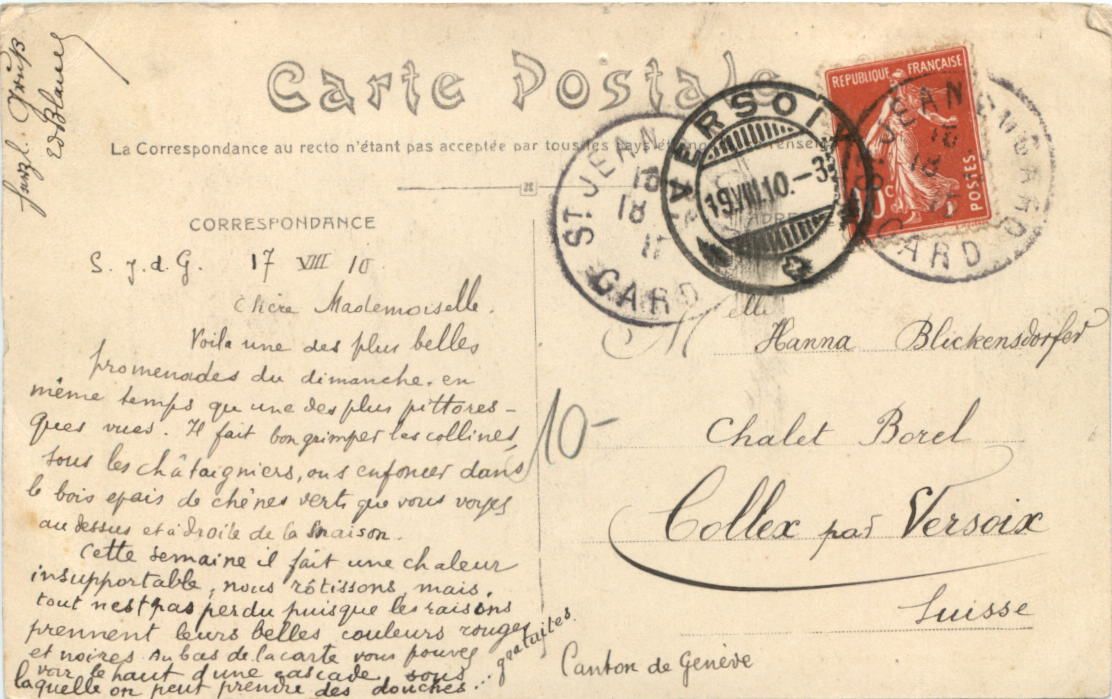 herzl. Gruß
Carte Postale
La Correspondance au recto n'étant pas acceptée par tous les pays
CORRESPONDANCE
S. J. d. G. 17 VIII 10
Chère Mademoiselle.
Voila une des plus belles
promenades du dimanche. en
même temps qu'une des plus pittores-
ques vues. Il fait bon grimper les collines,
sous les châtaigniers, ou s'enfoncer dans
le bois epais de chênes verts que vous voyez
au dessus et à droite de la maison.
Cette semaine il fait une chaleur
insupportable, nous rôtissons, mais.
tout n'est pas perdu puisque les raisins
prennent leurs belles couleurs rouges
et noires. Au bas de la carte vous pouvez
voir le haut d'une cascade sous
laquelle on peut prendre des douches... gratuites.
ST JEAN
18
GARD
VERSOIX
19.VIII.10.-3
RÉPUBLIQUE FRANÇAISE
10c
POSTES
ST JEAN DU GARD
18
GARD
Melle Hanna Blickensdorfer
10-
Chalet Borel
Collex par Versoix
Suisse
Canton de Genève